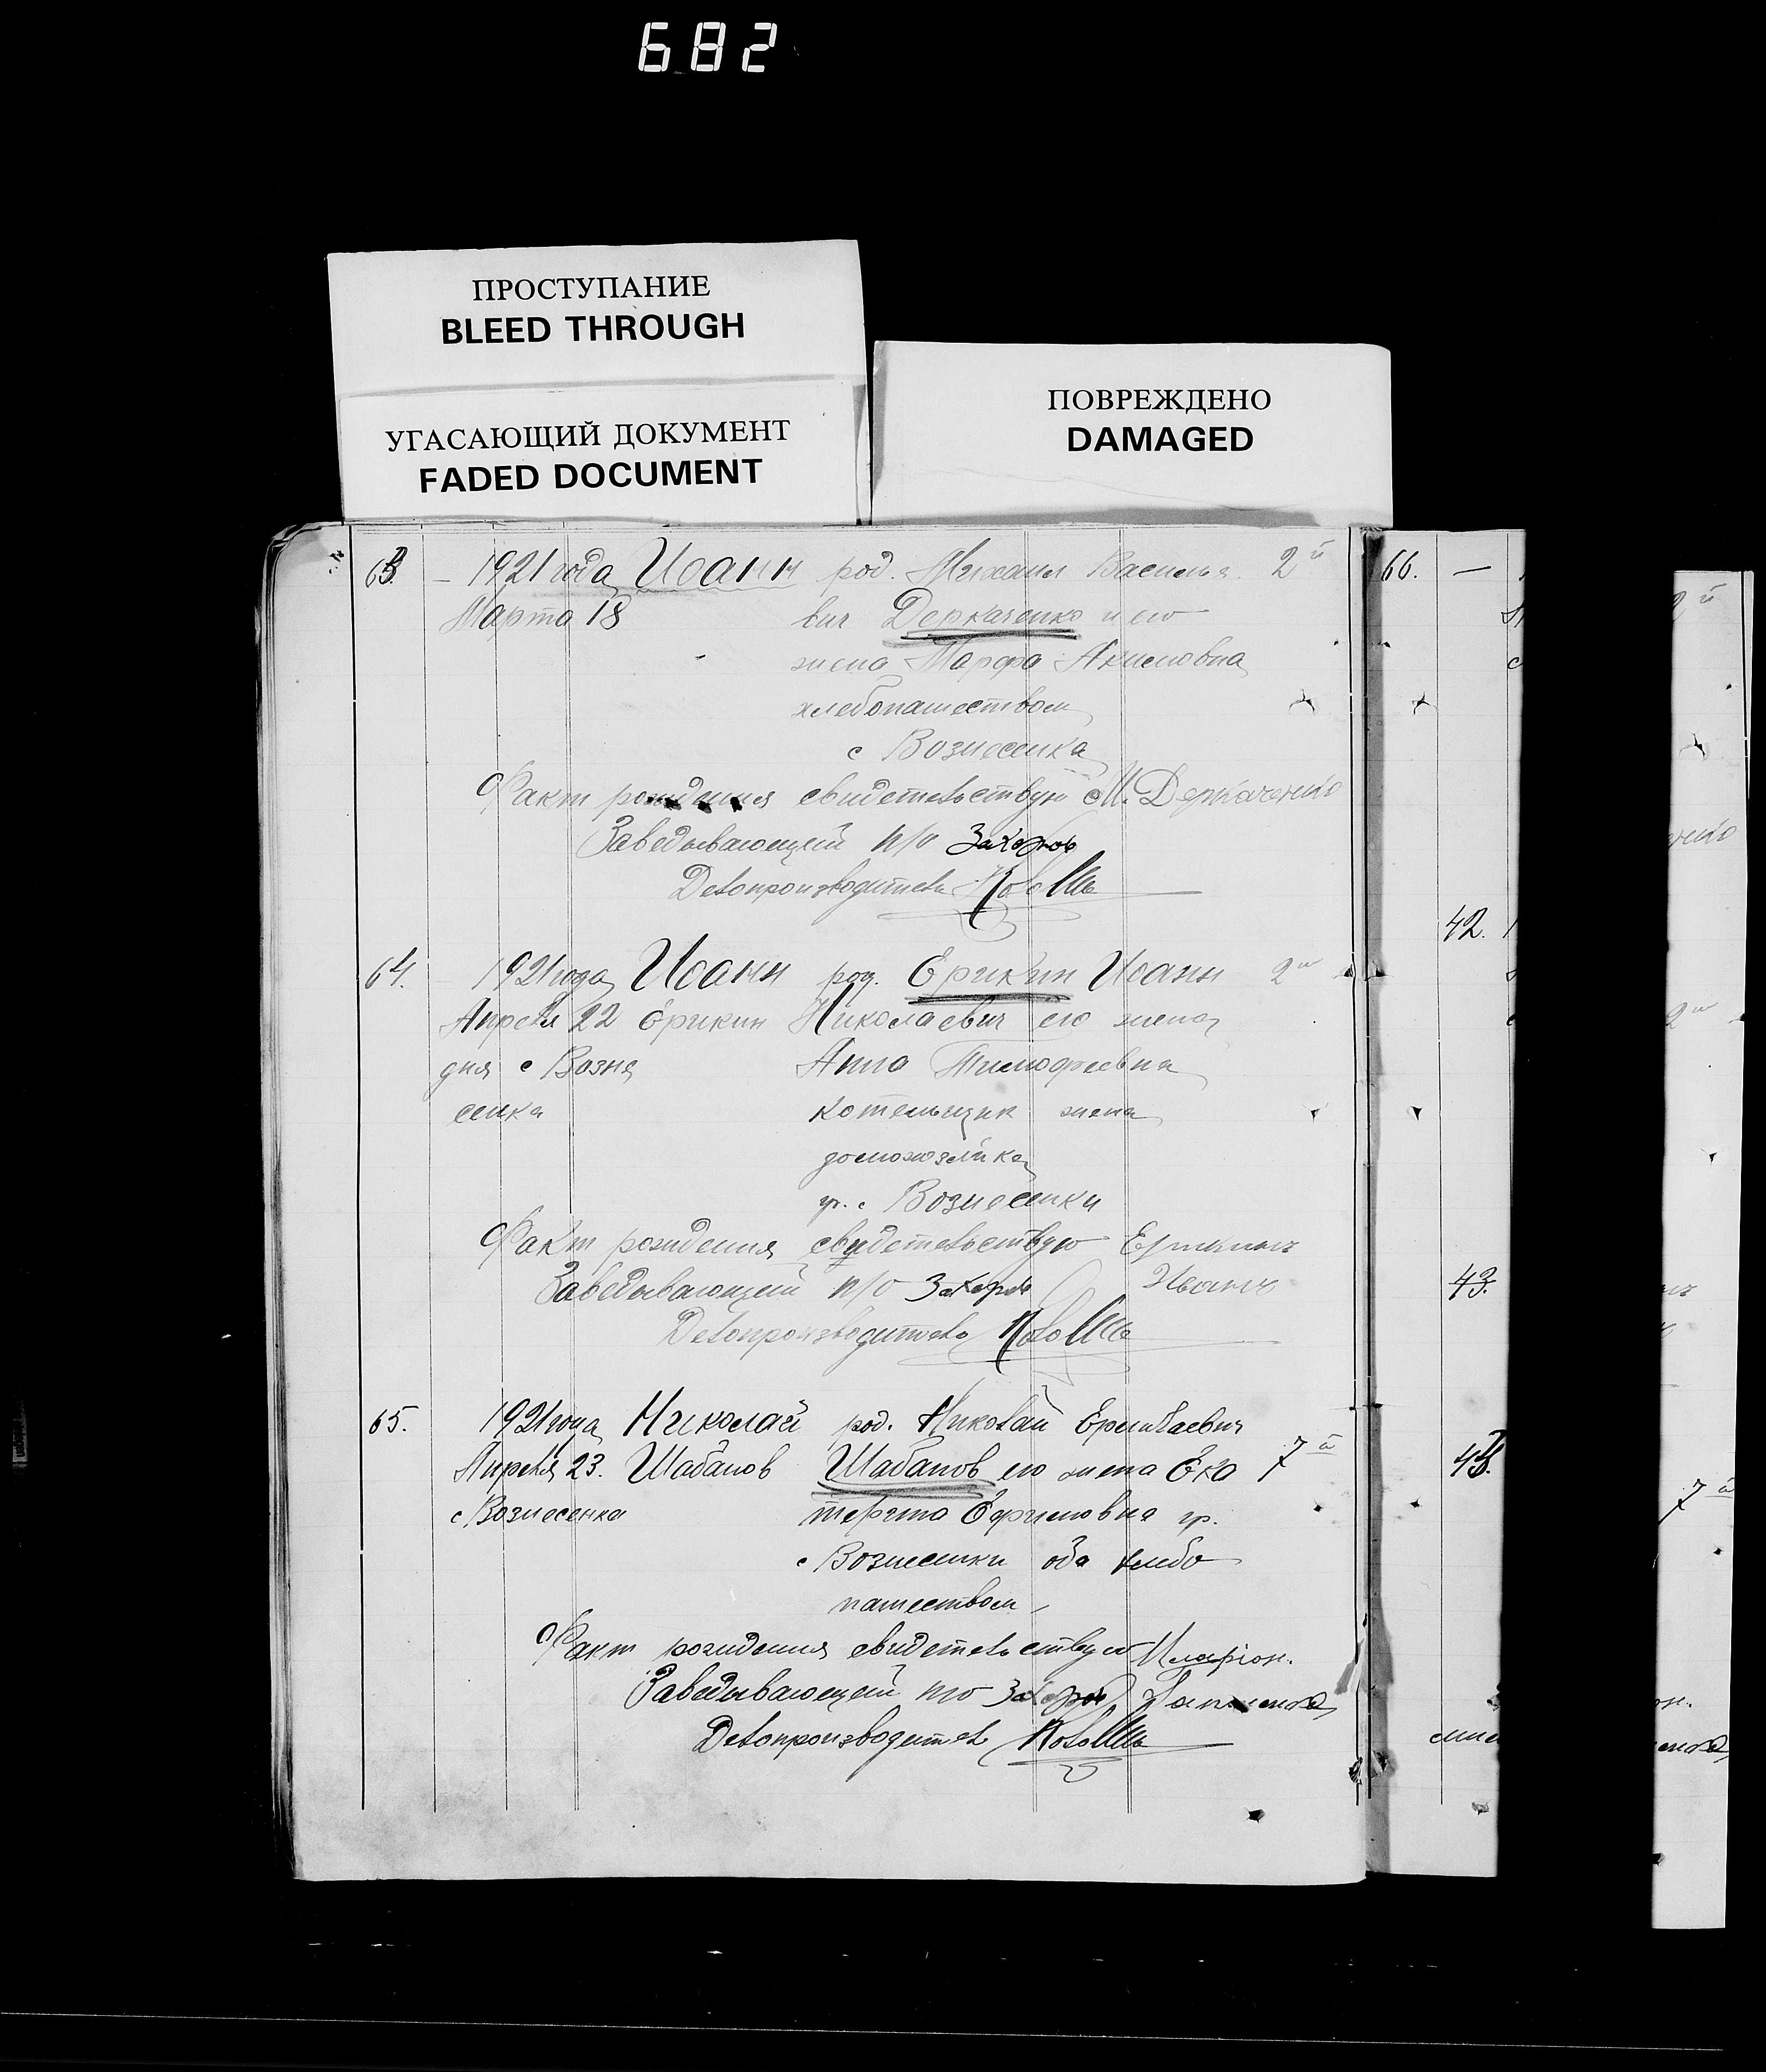 682
ПРОСТУПАНИЕ
BLEED THROUGH
УГАСАЮЩИЙ ДОКУМЕНТ
FADED DOCUMENT
ПОВРЕЖДЕНО
DAMAGED
63. — 1921 года Иоанн род. Михаил Василье 2й
Марта 18 вич Деркаченко и его
жена Марфа Акимовна
хлебопашеством
с Вознесенка
Факт рождения свидетельствую М. Деркаченко
Заведывающий п/о Захаров
Делопроизводитель
64. 1921 года Иоанн род. Ерикин Иоанн 2й
Апреля 22 Ерикин Николаевич его жена
дня с Возне Анна Тимофеевна
сенка котельщик жена
домохозяйка
гр. с Вознесенки
Факт рождения свидетельствую Ерикинъ
Заведывающий п/о Захаров Иванъ
Делопроизводитель
65. 1921 года Николай род. Николай 7й
Апреля 23. Шабанов Шабанов его жена Ека
с Вознесенка терина Ефимовна гр.
с Вознесенки оба хлебо
пашеством
Факт рождения свидетельствую Иларіон.
Заведывающий п/о Захаров
Делопроизводитель
66. —
42.
43.